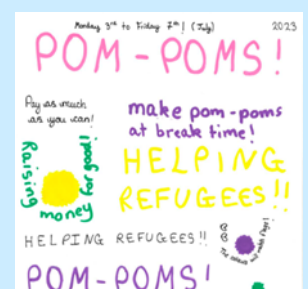 Monday 3rd to Friday 7th! (July) 2023
POM-POMS!
Pay as much
as you can!
make pom-poms
at break time!
Raising
money
for good!
HELPING
REFUGEES!!
HELPING REFUGEES!!
POM-POMS!